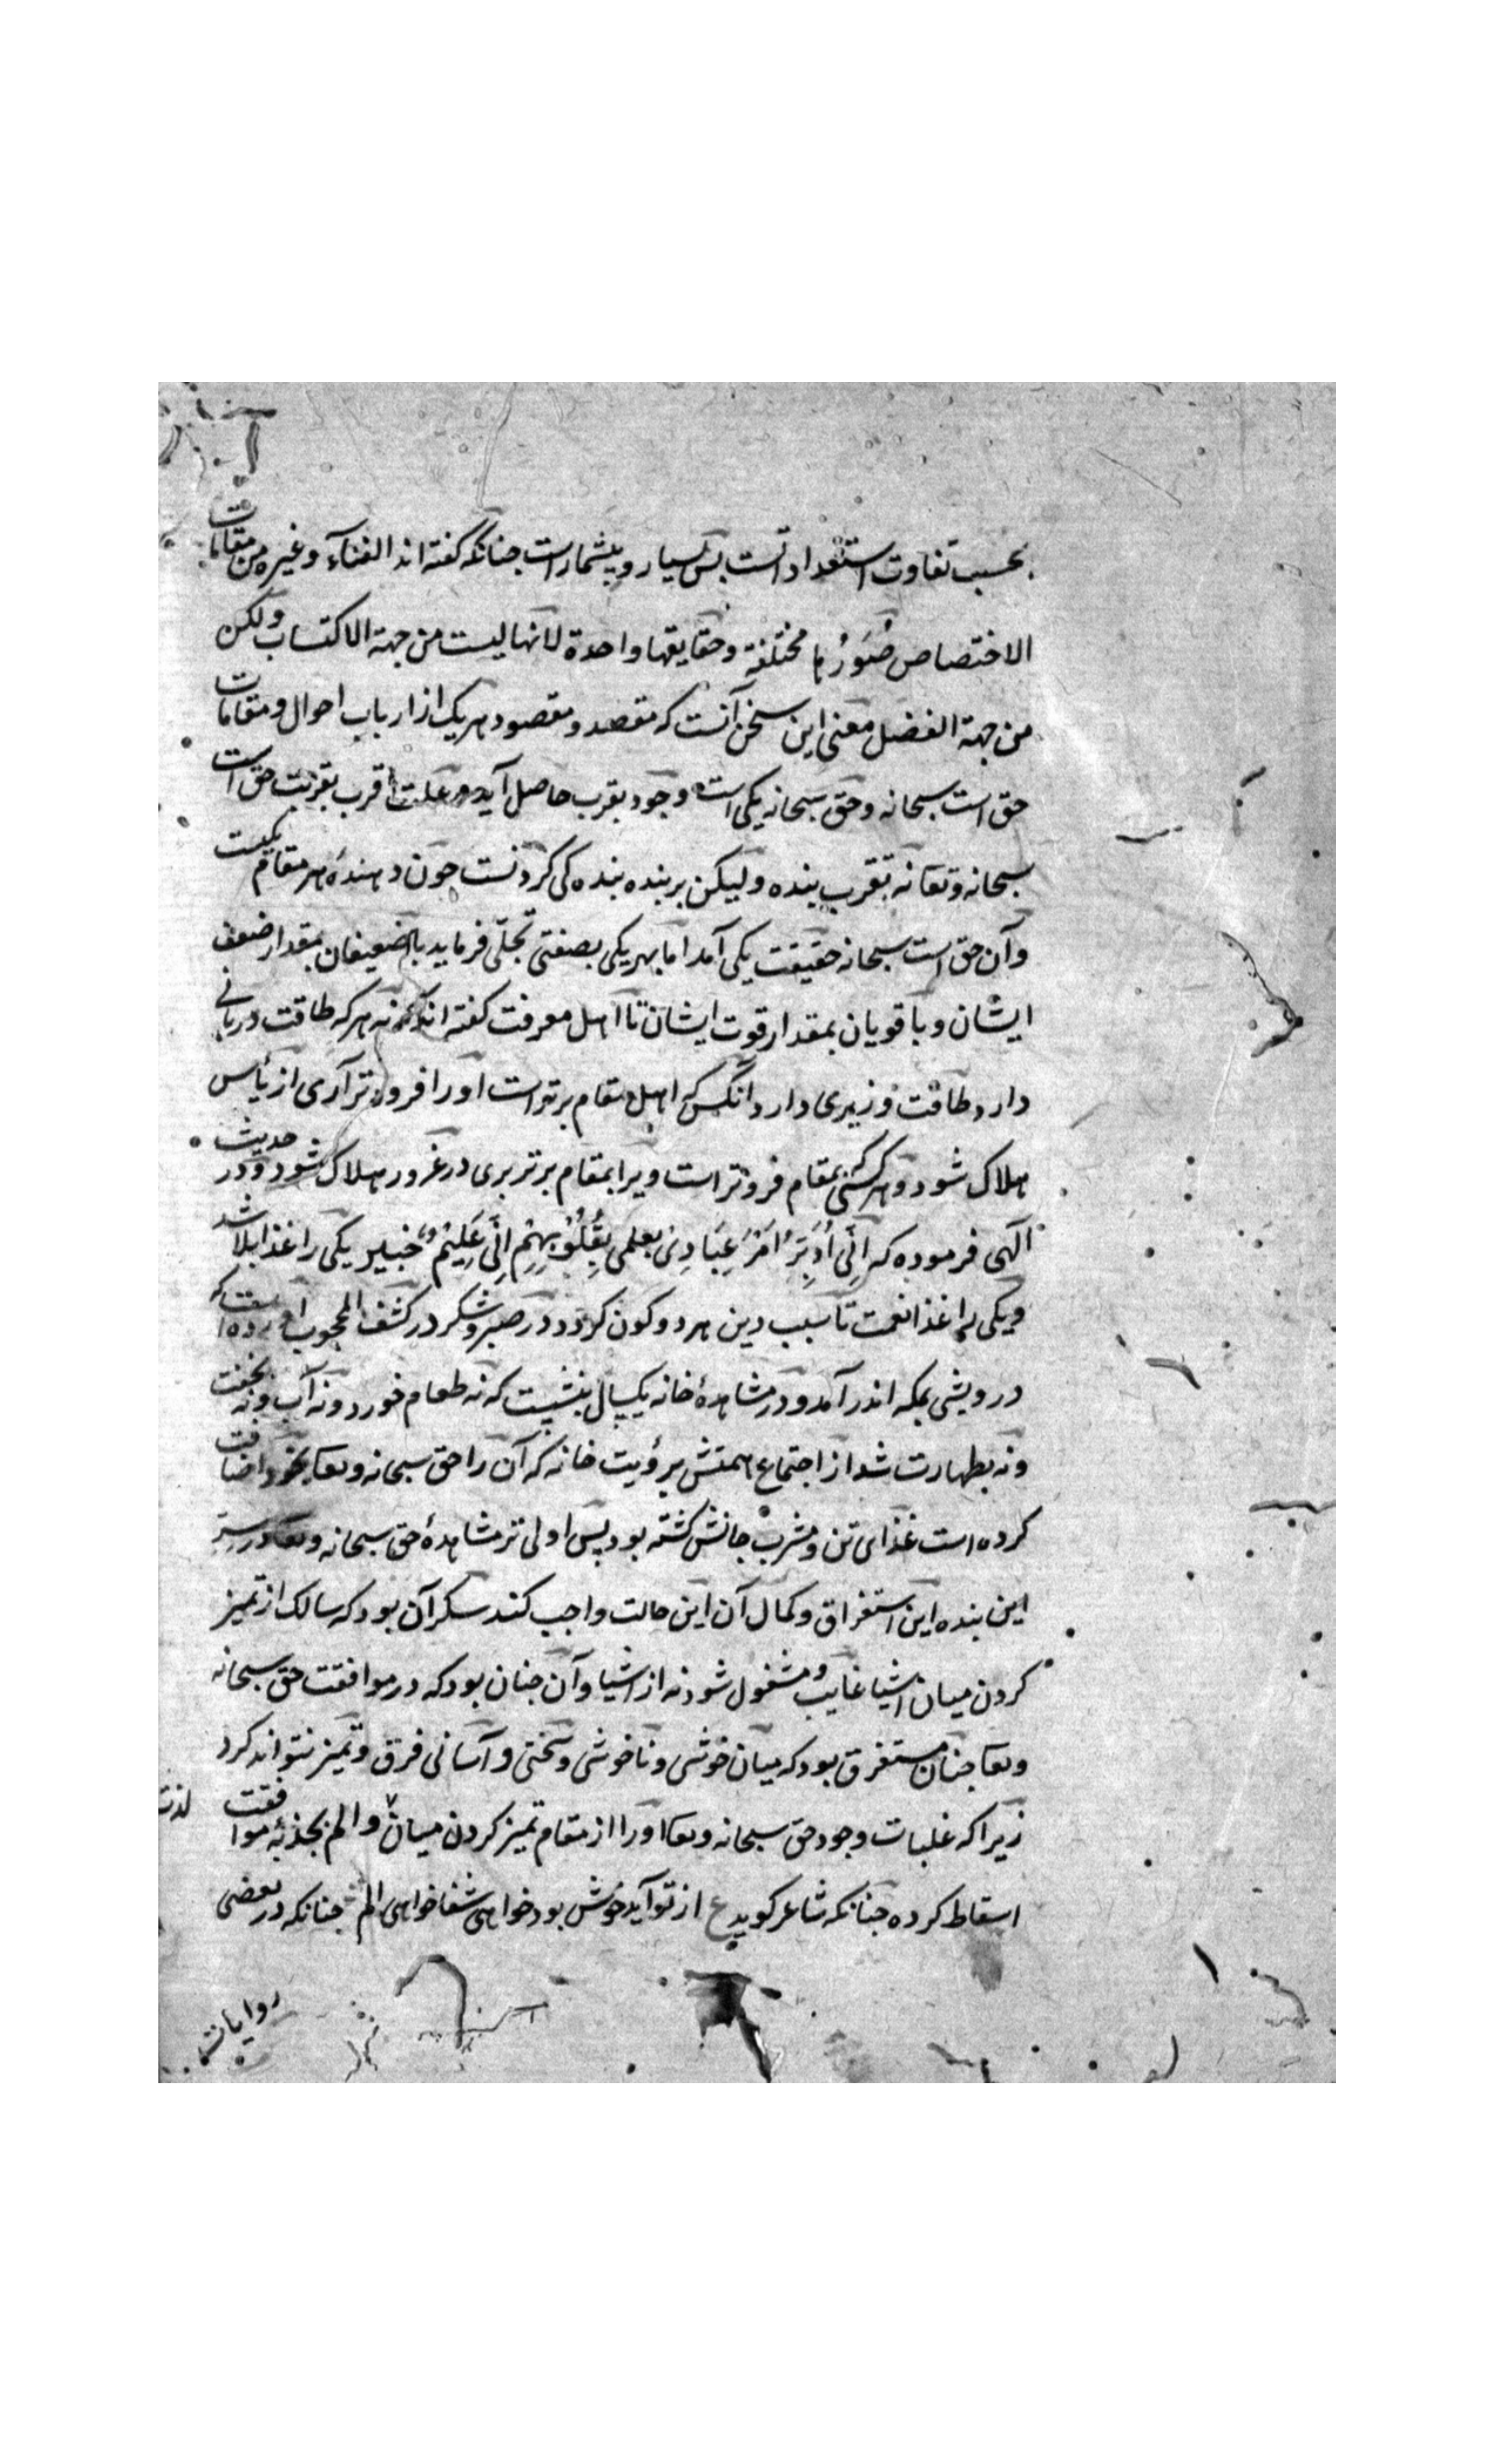 بحسب تفاوت استعداداتست بس بسیار و بیشمارست جنانکه گفته اند الفناء و غیره من مقامات
الاختصاص صُوَرُها مختلفة و حقایقها واحدة لانها لیست من جهة الاکتساب ولکن
من جهة الفضل معنی این سخن آنست که مقصد و مقصود هر یک از ارباب احوال و مقامات
حق است سبحانه و حق سبحانه یکی است وجود بقرب حاصل آید و علت اقرب بقربت حق است
سبحانه وتعا نه بتقرب بنده ولیکن بر بنده بنده کی کردنست جون دهندهٔ هر مقام یکیست
وآن حق است سبحانه حقیقت یکی آمد اما بهر یکی بصفتی تجلّی فرماید با ضعیفان بمقدار ضعف
ایشان و با قویان بمقدار قوت ایشان تا اهل معرفت کفته اند نه هر که طاقت دربانی
دارد طاقت وزیری دارد آنکس که اهل مقام برتر است او را فروتر آری از یأس
هلاک شود و هر کسی بمقام فروتر است ویرا بمقام برتر بری در غرور هلاک شود و در حدیث
الهی فرموده که اِنِّی اُدَبِّرُ اَمْرَ عِبَادِی بعلمی بِقُلُوْبِهِمْ اِنِّی عَلِیْمٌ خبیر یکی را غذا بلا شد
ویکی را غذا نعمت تا سبب دین هر دو کون کردد در صبر و شکر در کشف المحجوب آورده است که
درویشی بمکه اندر آمد و در مشاهدهٔ خانه یکسال بنشست که نه طعام خورد و نه آب و نه بخفت
ونه بطهارت شد از اجتماع همتش برؤیت خانه که آن را حق سبحانه وتعا بخود اضافت
کرده است غذای تن و مشرب جانش کشته بود پس اولی تر مشاهدهٔ حق سبحانه وتعا در سرّ
این بنده این استغراق و کمال آن این حالت واجب کند سکر آن بود که سالک از تمیز
کردن میان اشیا غایب و مشغول شود نه از اشیا و آن جنان بود که در موافقت حق سبحانه
وتعا جنان مستغرق بود که میان خوشی و ناخوشی و سختی و آسانی فرق و تمیز نتواند کرد
زیرا که غلبات وجود حق سبحانه وتعا او را از مقام تمیز کردن میان لذت و الم بجذبهٔ موافقت
اسقاط کرده جنانکه شاعر کوید ع از تو آید خوش بود خواهی شفا خواهی الم جنانکه در بعضی
روایات